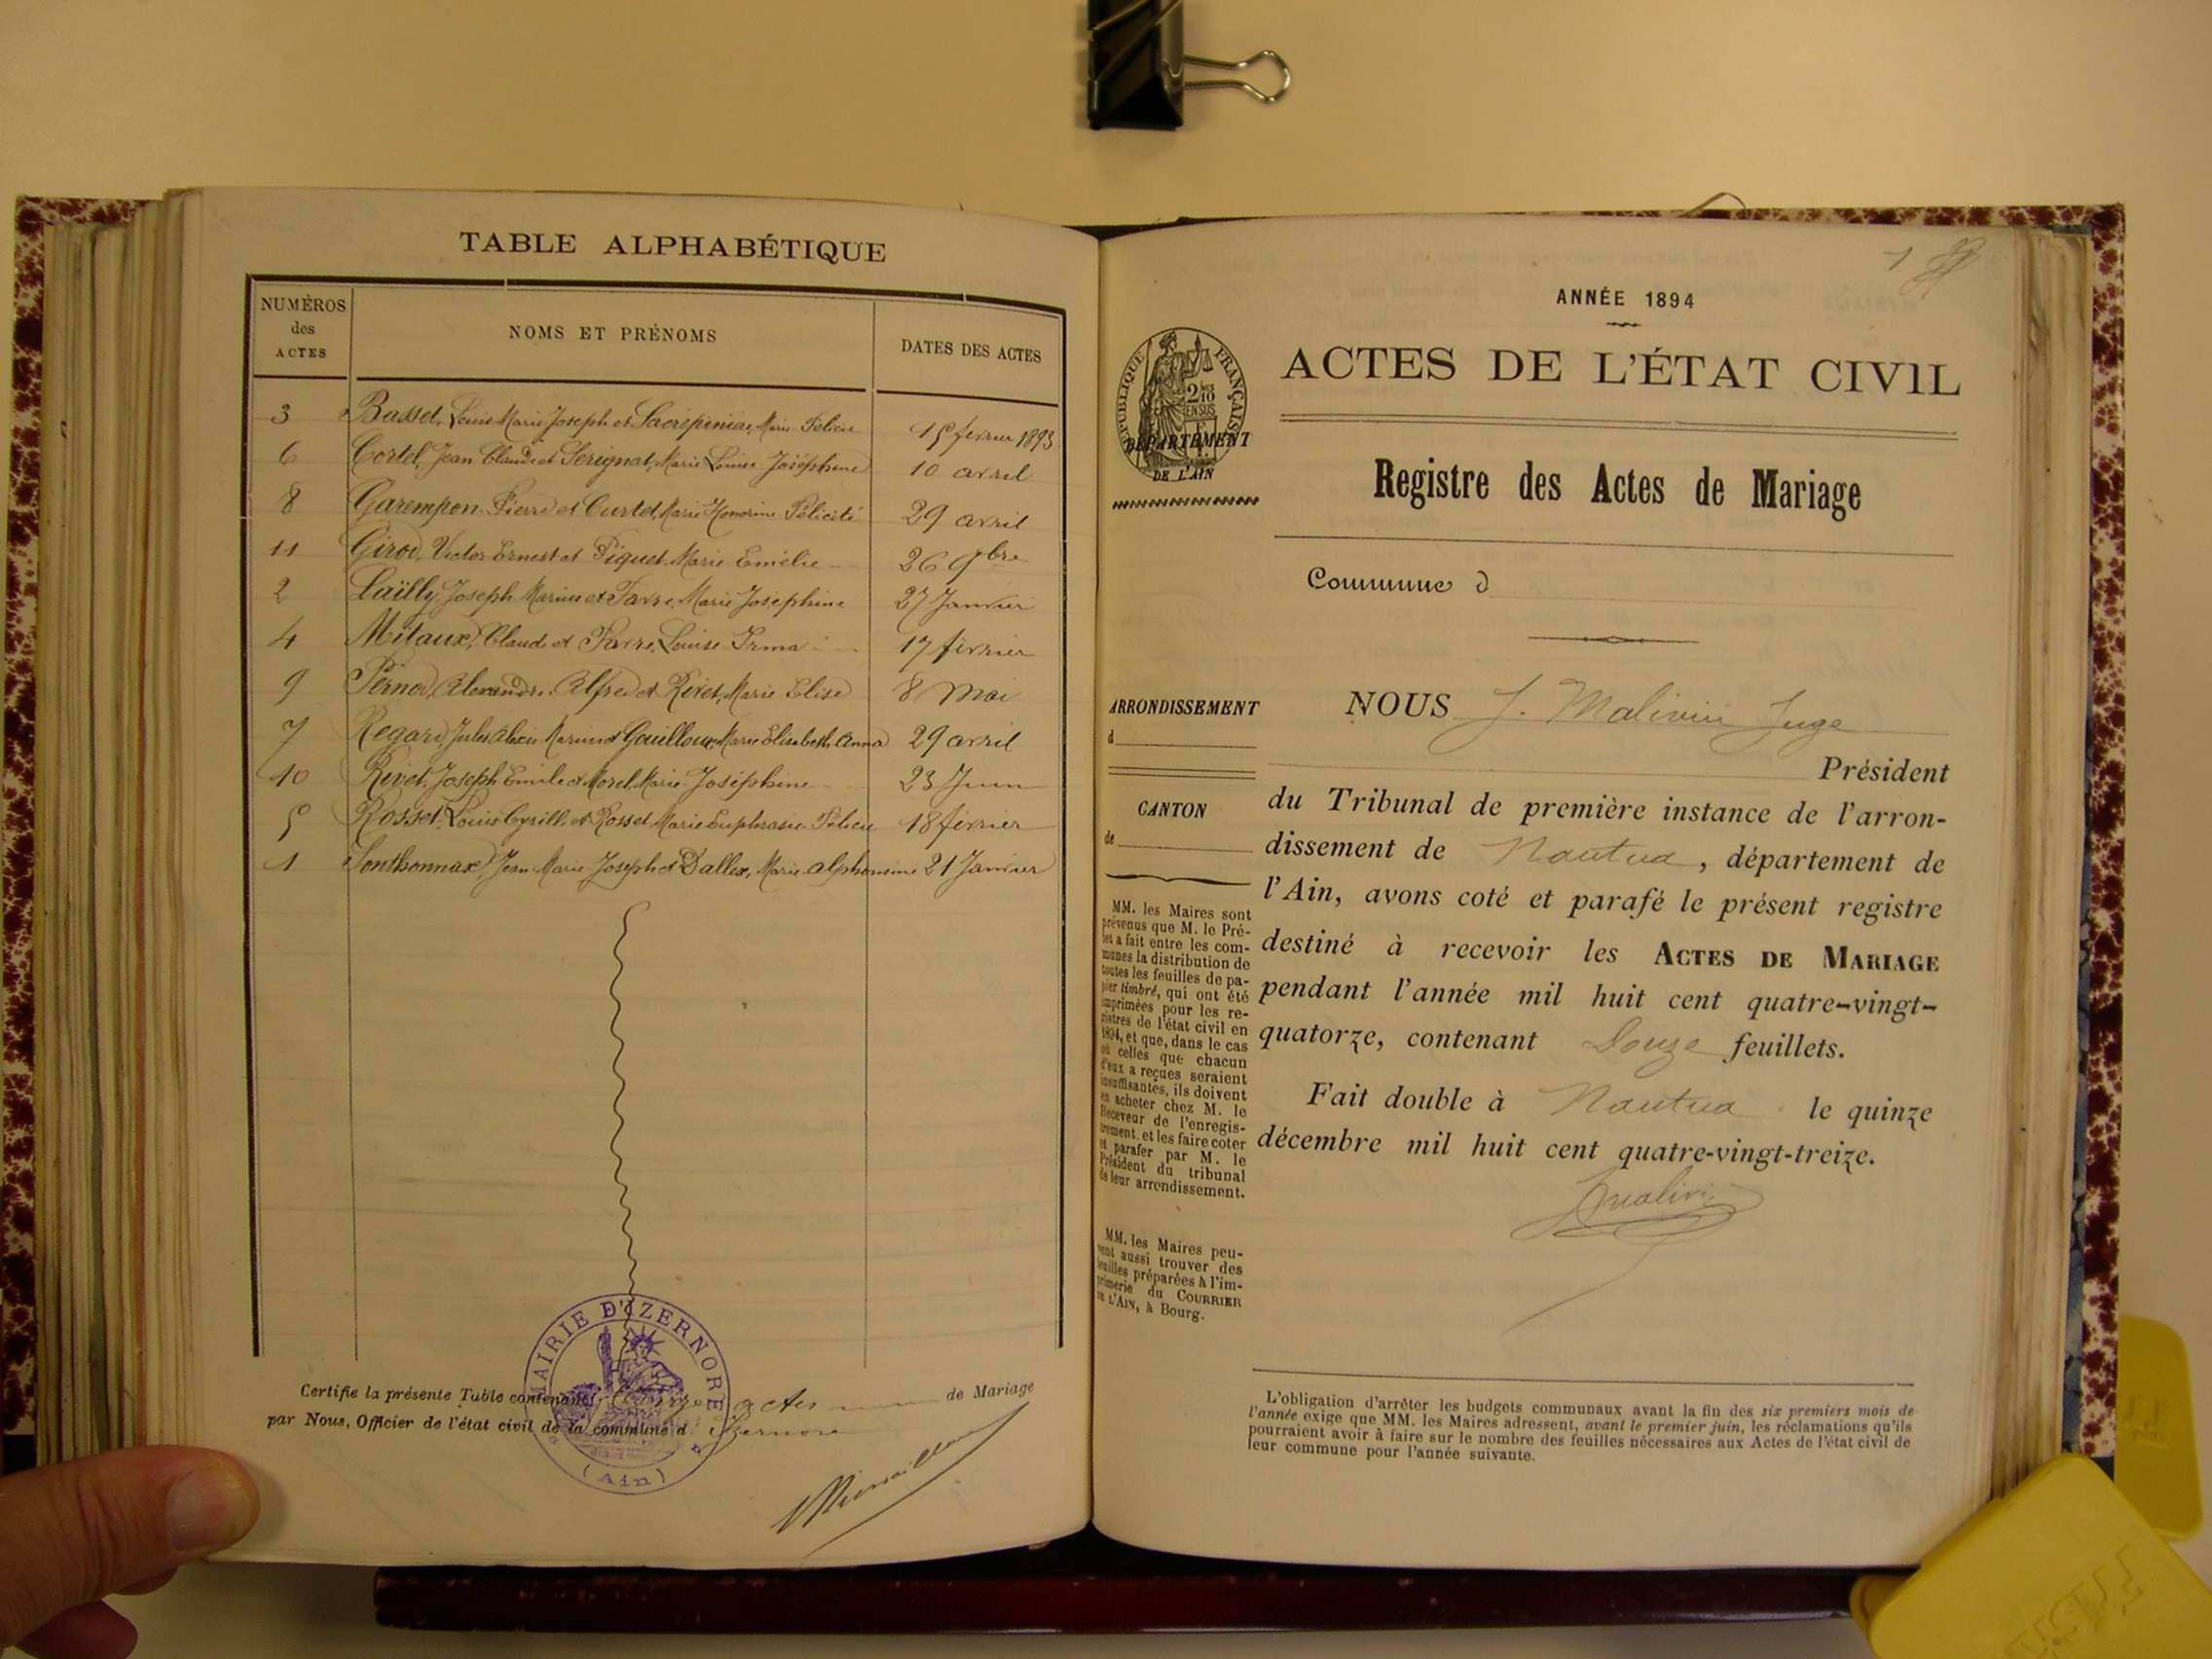 TABLE ALPHABÉTIQUE
NUMÉROS
des
ACTES
NOMS ET PRÉNOMS
DATES DES ACTES
3 Basset, Louis Marie Joseph et Marie Félicie 15 février 1893
6 Cortel, Jean Claude et Serignat, Marie Louise Joséphine 10 avril
8 Garempon Pierre et Curtet, Marie Honorine Félicité 29 avril
11 Girod, Victor Ernest et Piquet, Marie Emélie 26 9bre
2 Laïlly, Joseph Marius et Favre, Marie Joséphine 27 Janvier
4 Mitaux, Claude et Favre, Louise Irma 17 février
9 Pernod, Alexandre Alfred et Rivet, Marie Elise 8 Mai
7 Regard, Jules Alexis Marius et Gailloux, Marie Elisabeth Anna 29 avril
10 Rivet, Joseph Emile et Morel, Marie Joséphine 23 Juin
5 Rosset, Louis Cyrill et Rosset Marie Euphrasie Félicie 18 février
1 Sonthonnax, Jean Marie Joseph et Dallex, Marie Alphonsine 21 Janvier
MAIRIE D'IZERNORE
(Ain)
Certifie la présente Table contenant onze actes de Mariage
par Nous, Officier de l'état civil de la commune d Izernore
1
ANNÉE 1894
RÉPUBLIQUE FRANÇAISE
2/10 EN SUS
DÉPARTEMENT
DE L'AIN
ACTES DE L'ÉTAT CIVIL
Registre des Actes de Mariage
Commune d
ARRONDISSEMENT
d
CANTON
de
MM. les Maires sont
prévenus que M. le Pré-
fet a fait entre les com-
munes la distribution de
toutes les feuilles de pa-
pier timbré, qui ont été
imprimées pour les re-
gistres de l'état civil en
1894, et que, dans le cas
où celles que chacun
d'eux a reçues seraient
insuffisantes, ils doivent
en acheter chez M. le
Receveur de l'enregis-
trement, et les faire coter
et parafer par M. le
Président du tribunal
de leur arrondissement.
MM. les Maires peu-
vent aussi trouver des
feuilles préparées à l'im-
primerie du COURRIER
DE L'AIN, à Bourg.
NOUS J. Malivin Juge
Président
du Tribunal de première instance de l'arron-
dissement de Nantua, département de
l'Ain, avons coté et parafé le présent registre
destiné à recevoir les ACTES DE MARIAGE
pendant l'année mil huit cent quatre-vingt-
quatorze, contenant Douze feuillets.
Fait double à Nantua le quinze
décembre mil huit cent quatre-vingt-treize.
L'obligation d'arrêter les budgets communaux avant la fin des six premiers mois de
l'année exige que MM. les Maires adressent, avant le premier juin, les réclamations qu'ils
pourraient avoir à faire sur le nombre des feuilles nécessaires aux Actes de l'état civil de
leur commune pour l'année suivante.